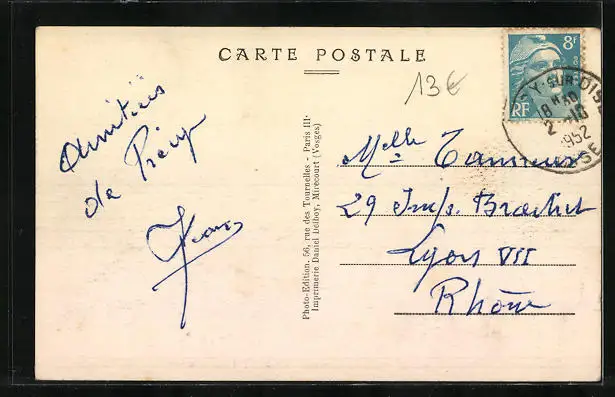 CARTE POSTALE
13€
8F
RF
Y-SUR-OISE
18 H 30
2 -10
1952
OISE
Amitiés
de Précy
Jean
Photo-Edition, 56, rue des Tournelles - Paris III·
Imprimerie Daniel Delboy, Mirecourt (Vosges)
Melle
29 Imp. Brachet
Lyon VII
Rhône